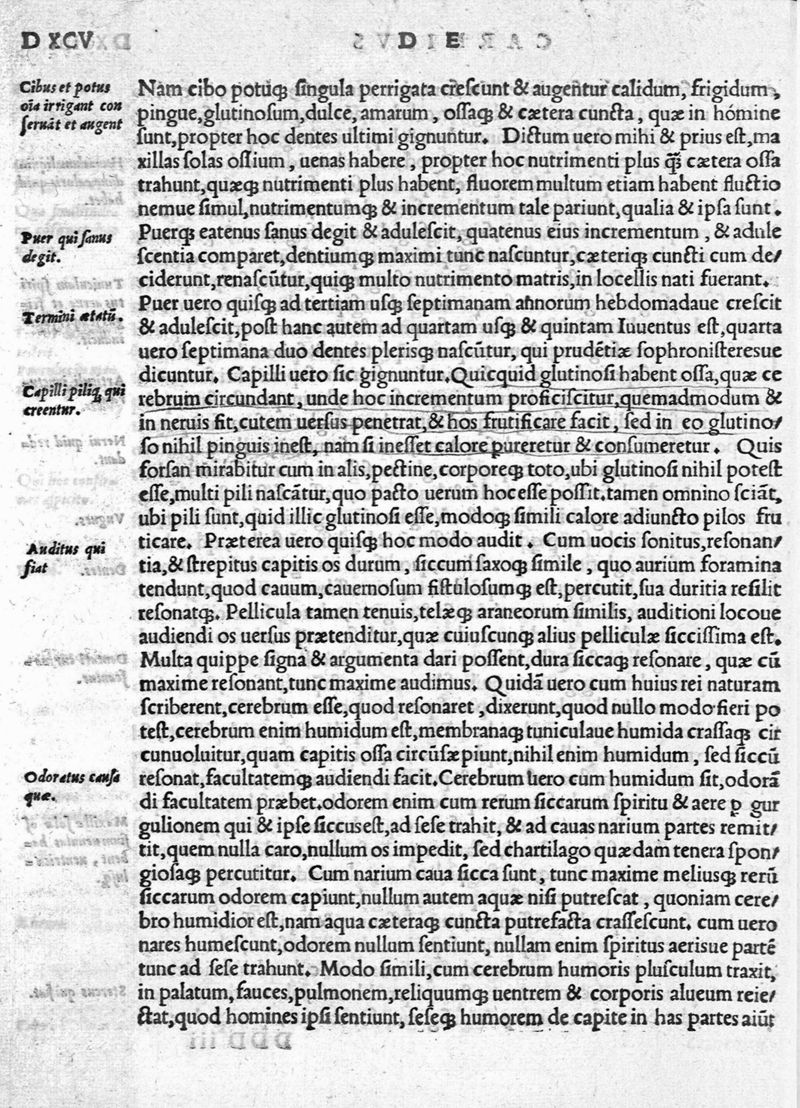 DXCV DE
Cibus et potus
oĩa irrigant con
seruãt et augent
Nam cibo potuq; singula perrigata crescunt & augentur calidum, frigidum,
pingue, glutinosum, dulce, amarum, ossaq; & cætera cuncta, quæ in hómine
sunt, propter hoc dentes ultimi gignuntur. Dictum uero mihi & prius est, ma
xillas solas ossium, uenas habere, propter hoc nutrimenti plus q̃ cætera ossa
trahunt, quæq; nutrimenti plus habent, fluorem multum etiam habent fluctio
nemue simul, nutrimentumq; & incrementum tale pariunt, qualia & ipsa sunt.
Puer qui sanus
degit.
Puerq; eatenus sanus degit & adulescit, quatenus eius incrementum, & adule
scentia comparet, dentiumq; maximi tunc nascuntur, cæteriq; cuncti cum de/
ciderunt, renascũtur, quiq; multo nutrimento matris, in locellis nati fuerant.
Termini ætatũ.
Puer uero quisq; ad tertiam usq; septimanam annorum hebdomadaue crescit
& adulescit, post hanc autem ad quartam usq; & quintam Iuuentus est, quarta
uero septimana duo dentes plerisq; nascũtur, qui prudẽtiæ sophronisteresue
Capilli piliq; qui
creentur.
dicuntur. Capilli uero sic gignuntur. Quicquid glutinosi habent ossa, quæ ce
rebrum circundant, unde hoc incrementum proficiscitur, quemadmodum &
in neruis fit, cutem uersus penetrat, & hos frutificare facit, sed in eo glutino/
so nihil pinguis inest, nam si inesset calore pureretur & consumeretur. Quis
forsan mirabitur cum in alis, pectine, corporeq; toto, ubi glutinosi nihil potest
esse, multi pili nascãtur, quo pacto uerum hoc esse possit. tamen omnino sciãt,
ubi pili sunt, quid illic glutinosi esse, modoq; simili calore adiuncto pilos fru
Auditus qui
fiat
ticare. Præterea uero quisq; hoc modo audit. Cum uocis sonitus, resonan/
tia, & strepitus capitis os durum, siccum saxoq; simile, quo aurium foramina
tendunt, quod cauum, cauernosum fistulosumq; est, percutit, sua duritia resilit
resonatq;. Pellicula tamen tenuis, telæq; araneorum similis, auditioni locoue
audiendi os uersus prætenditur, quæ cuiuscunq; alius pelliculæ siccissima est.
Multa quippe signa & argumenta dari possent, dura siccaq; resonare, quæ cũ
maxime resonant, tunc maxime audimus. Quidã uero cum huius rei naturam
scriberent, cerebrum esse, quod resonaret, dixerunt, quod nullo modo fieri po
test, cerebrum enim humidum est, membranaq; tuniculaue humida crassaq; cir
cunuoluitur, quam capitis ossa circũsæpiunt, nihil enim humidum, sed siccũ
Odoratus causa
quæ.
resonat, facultatemq; audiendi facit. Cerebrum uero cum humidum sit, odorã
di facultatem præbet. odorem enim cum rerum siccarum spiritu & aere ꝑ gur
gulionem qui & ipse siccus est, ad sese trahit, & ad cauas narium partes remit/
tit, quem nulla caro, nullum os impedit, sed chartilago quædam tenera spon/
giosaq; percutitur. Cum narium caua sicca sunt, tunc maxime meliusq; rerũ
siccarum odorem capiunt, nullum autem aquæ nisi putrescat, quoniam cere/
bro humidior est, nam aqua cæteraq; cuncta putrefacta crassescunt. cum uero
nares humescunt, odorem nullum sentiunt, nullam enim spiritus aerisue partẽ
tunc ad sese trahunt. Modo simili, cum cerebrum humoris plusculum traxit,
in palatum, fauces, pulmonem, reliquumq; uentrem & corporis alueum reie/
ctat, quod homines ipsi sentiunt, seseq; humorem de capite in has partes aiũt